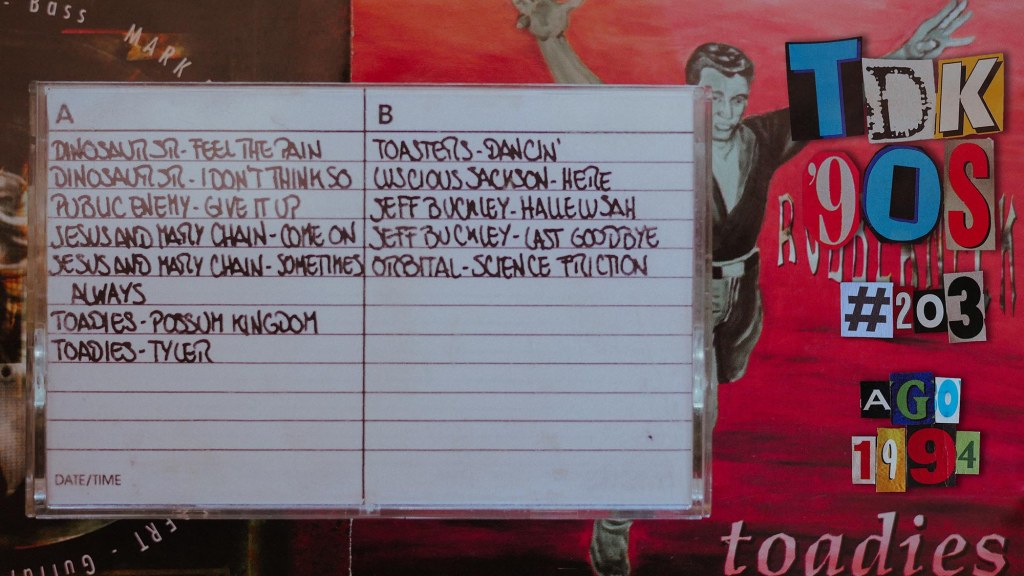 - Bass
MARK
A
DINOSAUR JR - FEEL THE PAIN
DINOSAUR JR - I DON'T THINK SO
PUBLIC ENEMY - GIVE IT UP
JESUS AND MARY CHAIN - COME ON
JESUS AND MARY CHAIN - SOMETIMES
ALWAYS
TOADIES - POSSUM KINGDOM
TOADIES - TYLER
DATE/TIME
B
TOASTERS - DANCIN'
LUSCIOUS JACKSON - HERE
JEFF BUCKLEY - HALLELUJAH
JEFF BUCKLEY - LAST GOODBYE
ORBITAL - SCIENCE FRICTION
TDK
'90S
#203
AGO
1994
toadies